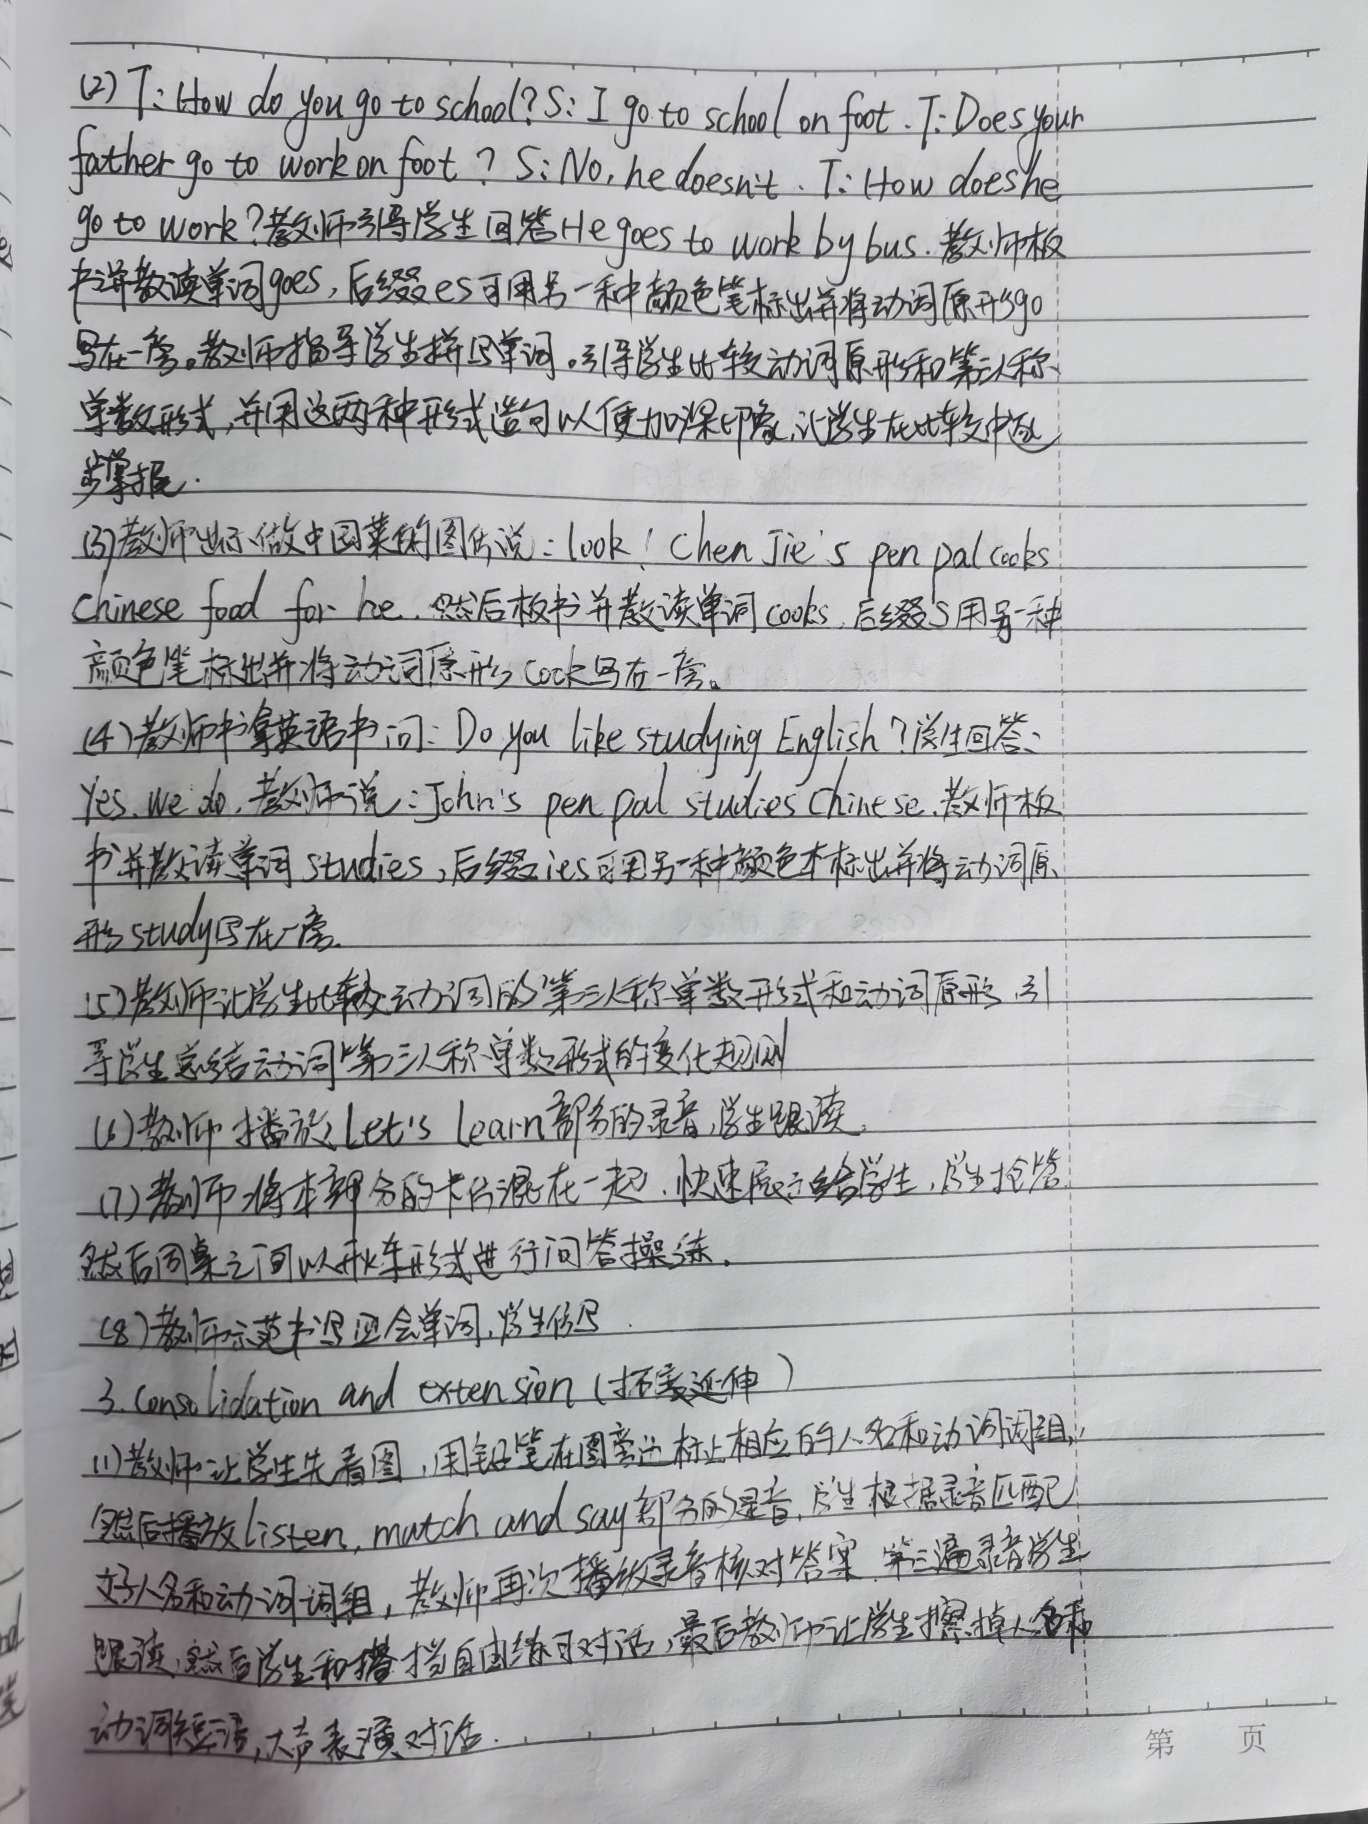 (2) T: How do you go to school? S: I go to school on foot. T: Does your
father go to work on foot? S: No, he doesn't. T: How does he
go to work? 教师引导学生回答He goes to work by bus. 教师板
书并教读单词goes, 后缀es可用另一种颜色笔标出并将动词原形go
写在一旁。教师指导学生拼写单词。引导学生比较动词原形和第三人称
单数形式,并用这两种形式造句以便加深印象,让学生在比较中逐
步掌握.
(3)教师出示做中国菜的图片说: look! Chen Jie's pen pal cooks
Chinese food for he. 然后板书并教读单词cooks, 后缀s用另一种
颜色笔标出并将动词原形cook写在一旁。
(4)教师书拿英语书问: Do you like studying English? 学生回答:
Yes. we do. 教师说: John's pen pal studies Chinese. 教师板
书并教读单词studies, 后缀ies可用另一种颜色本标出并将动词原
形study写在一旁.
(5)教师让学生比较动词的第三人称单数形式和动词原形,引
导学生总结动词第三人称单数形式的变化规则
(6)教师播放Let's learn部分的录音,学生跟读.
(7)教师将本部分的卡片混在一起,快速展示给学生,学生抢答.
然后同桌之间以开火车形式进行问答操练.
(8)教师示范书写四会单词,学生仿写.
3. Consolidation and extension (拓展延伸)
(1)教师让学生先看图,用铅笔在图旁边标上相应的人名和动词词组,
然后播放listen, match and say部分的录音,学生根据录音匹配
好人名和动词词组,教师再次播放录音核对答案.第三遍录音学生
跟读,然后学生和搭档自由练习对话,最后教师让学生擦掉人名和
动词短语,大声表演对话.
第 页